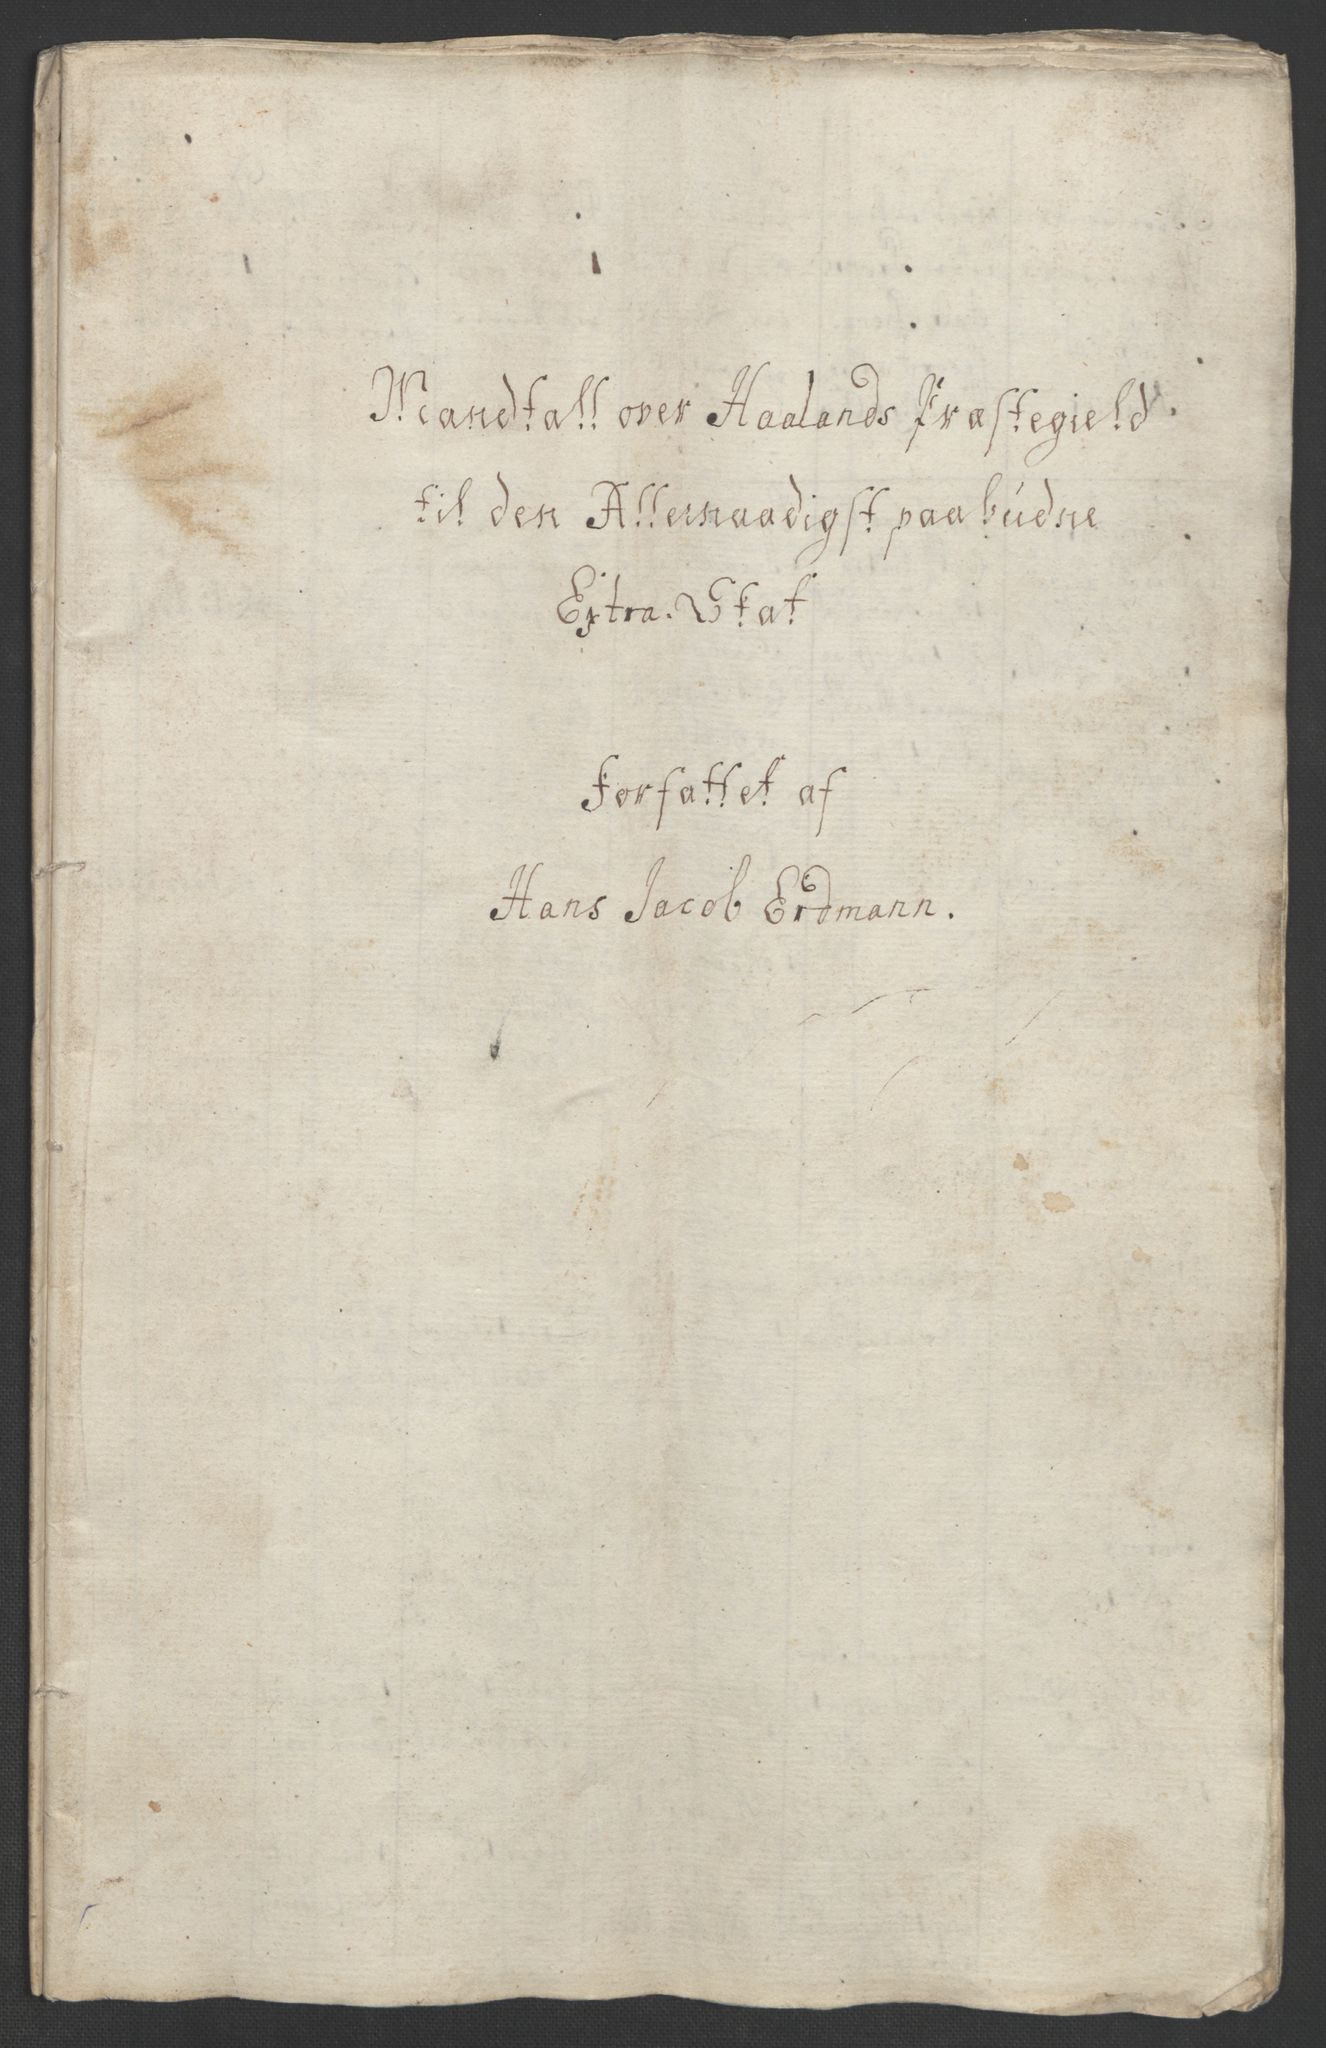 Mandtall over Haalands Præstegield
til den Allernaadigst paabudne
Extra. Skat
Forfattet af
Hans Jacob Erdmann.